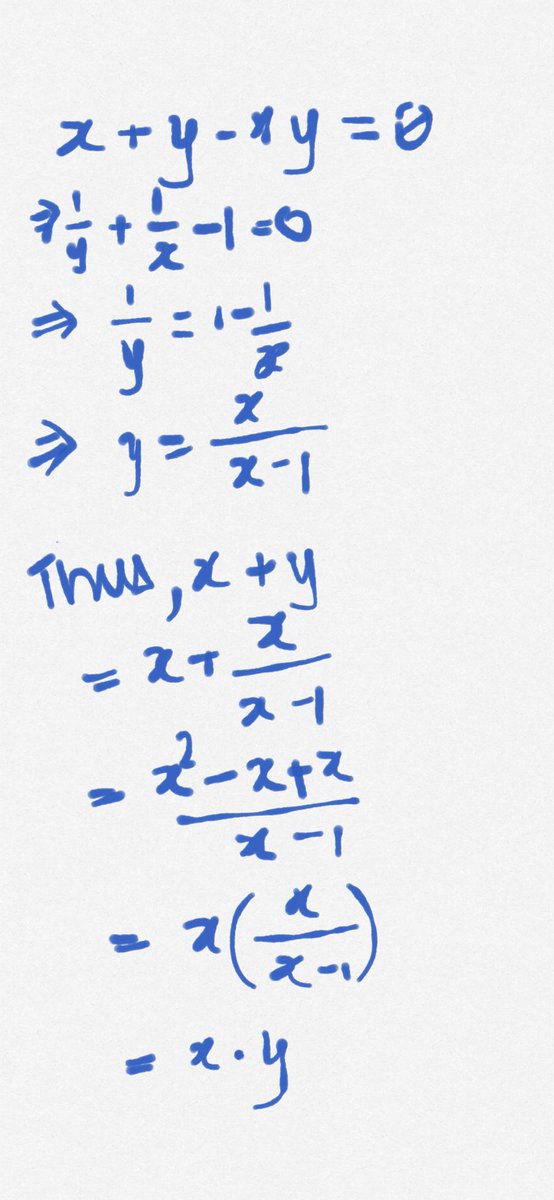 x + y - xy = 0
⇒ 1/y + 1/x - 1 = 0
⇒ 1/y = 1 - 1/x
⇒ y = x/(x - 1)
Thus, x + y
= x + x/(x - 1)
= (x² - x + x)/(x - 1)
= x(x/(x - 1))
= x · y